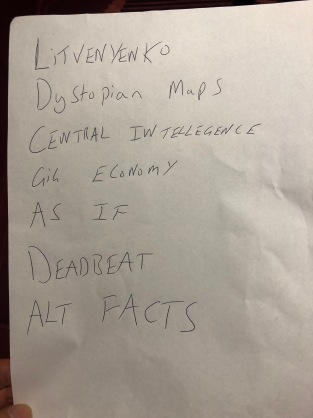 LITVENYENKO
Dystopian Maps
CENTRAL INTELLEGENCE
GIG ECONOMY
AS IF
DEADBEAT
ALT FACTS